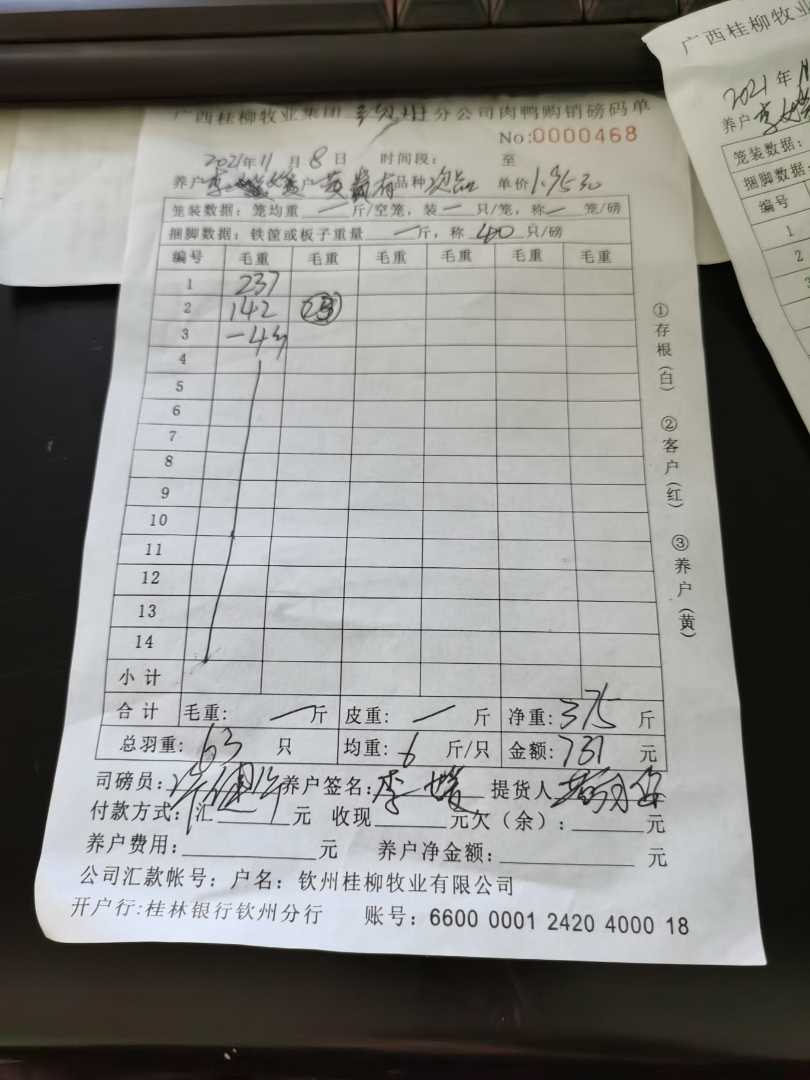 广西桂柳牧业集团 钦州 分公司肉鸭购销磅码单
No:0000468
2021年11月8日 时间段: 至
养户 李 客户 黄 有 品种 次品 单价 1.95元
笼装数据:笼均重 一 斤/空笼,装 一 只/笼,称 一 笼/磅
捆脚数据:铁筐或板子重量 一 斤,称 40 只/磅
编号 毛重 毛重 毛重 毛重 毛重 毛重
1 237
2 142 23
3 -4斤
4
5
6
7
8
9
10
11
12
13
14
小计
合计 毛重: 一 斤 皮重: 一 斤 净重: 375 斤
总羽重: 63 只 均重: 6 斤/只 金额: 731 元
司磅员: 养户签名: 李 提货人
付款方式:汇 元 收现 元欠(余): 元
养户费用: 元 养户净金额: 元
公司汇款帐号:户名:钦州桂柳牧业有限公司
开户行:桂林银行钦州分行 账号:6600 0001 2420 4000 18
①存根(白) ②客户(红) ③养户(黄)
广西桂柳牧业
2021年11
养户 李
笼装数据:
捆脚数据:
编号
1
2